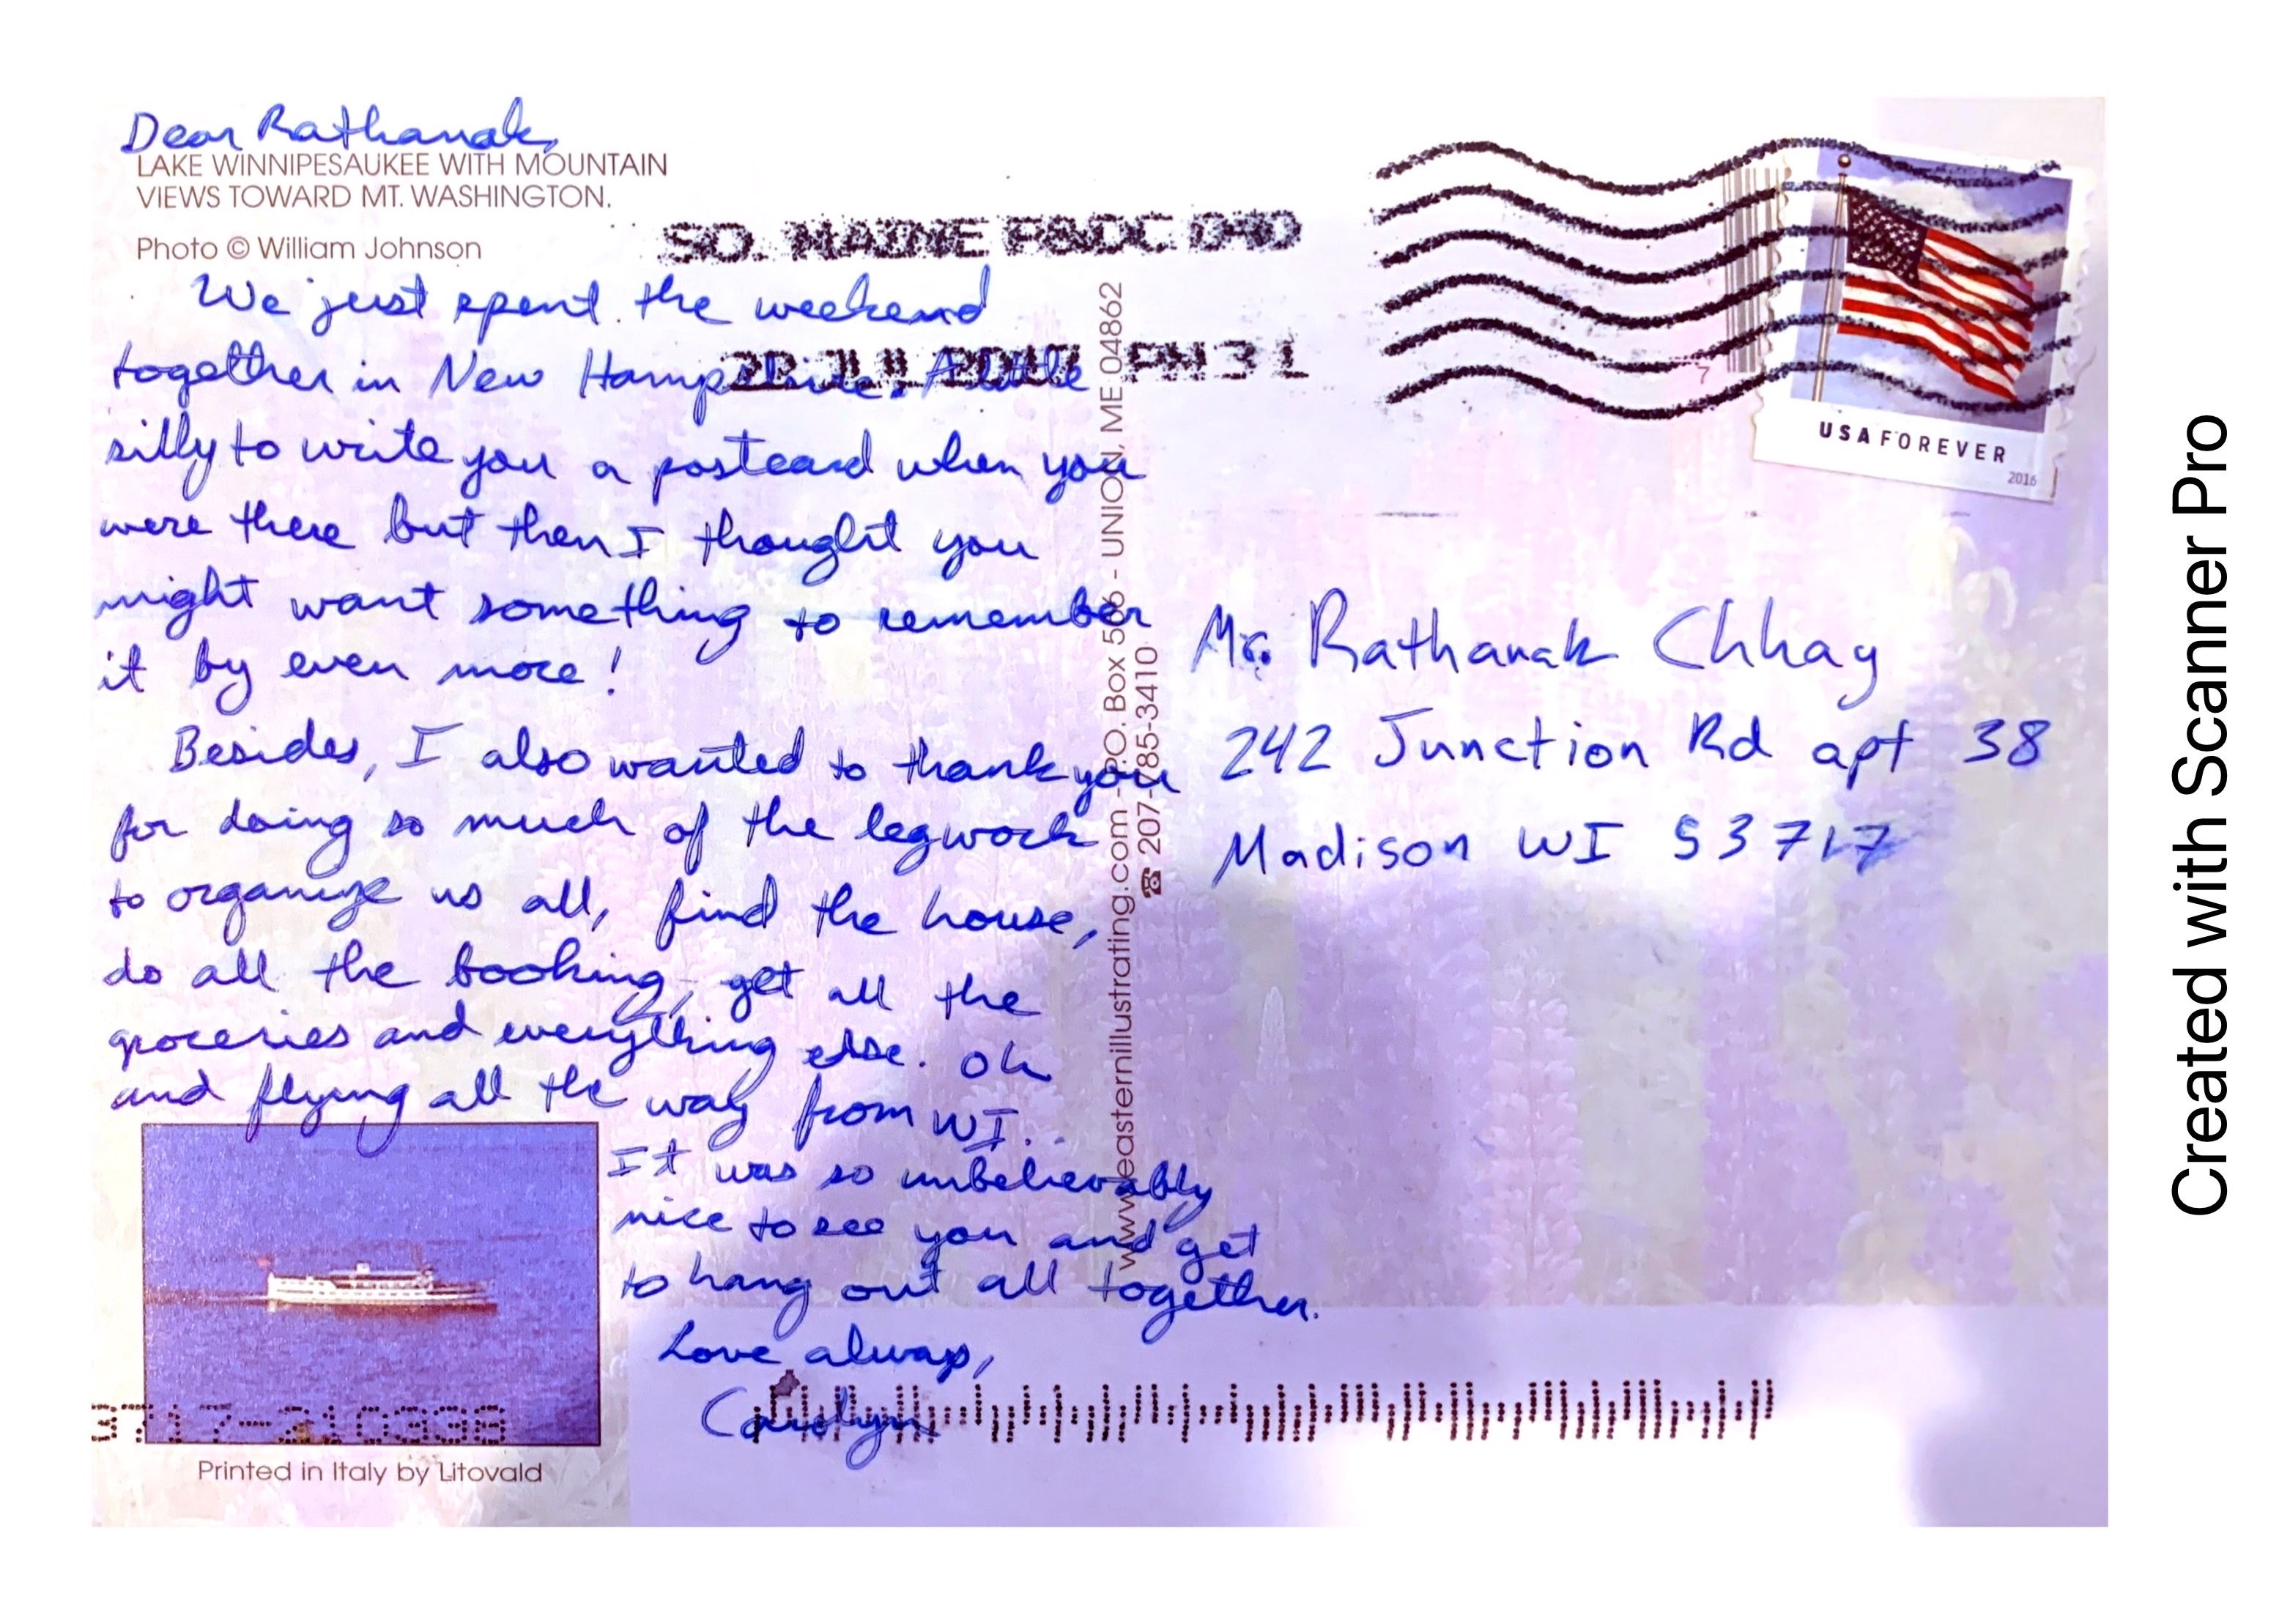 Dear Rathanak,
LAKE WINNIPESAUKEE WITH MOUNTAIN
VIEWS TOWARD MT. WASHINGTON.
Photo © William Johnson
We just spent the weekend
together in New Hampshire. A little
silly to write you a postcard when you
were there but then I thought you
might want something to remember
it by even more!
Besides, I also wanted to thank you
for doing so much of the legwork
to organize us all, find the house,
do all the booking, get all the
groceries and everything else. Oh
and flying all the way from WI.
It was so unbelievably
nice to see you and get
to hang out all together.
Love always,
Carolyn
Printed in Italy by Litovald
SO. MAINE P&DC 040
JUL PM 3 L
www.easternillustrating.com - P.O. Box 566 - UNION, ME 04862
☎ 207-785-3410
USA FOREVER
2016
7
Mr. Rathanak Chhay
242 Junction Rd apt 38
Madison WI 53717
Created with Scanner Pro